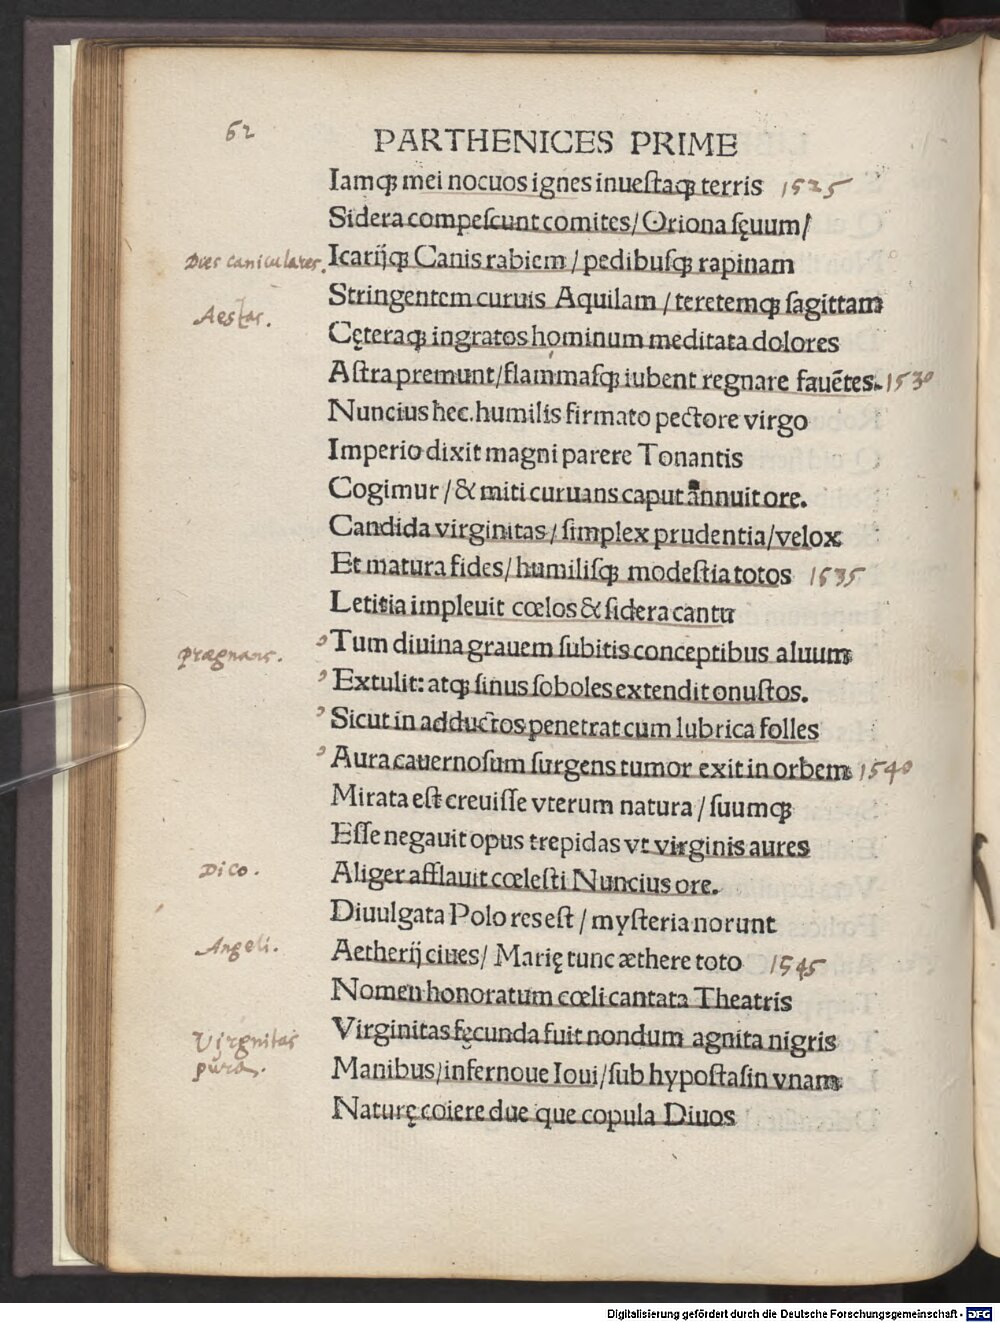 62
PARTHENICES PRIME
Iamqꝫ mei nocuos ignes inueſtaqꝫ terris 1525
Sidera compeſcunt comites/ Oriona ſęuum/
Dies caniculares. Icarijqꝫ Canis rabiem / pedibuſqꝫ rapinam
Stringentem curuis Aquilam / teretemqꝫ ſagittam
Aestas.
Cęteraqꝫ ingratos hominum meditata dolores
Aſtra premunt/flammaſqꝫ iubent regnare fauētes. 1530
Nuncius hec. humilis firmato pectore virgo
Imperio dixit magni parere Tonantis
Cogimur / & miti curuans caput annuit ore.
Candida virginitas / ſimplex prudentia/velox
Et matura fides/ humiliſqꝫ modeſtia totos 1535
Letitia impleuit cœlos & ſidera cantu
prægnans. Tum diuina grauem ſubitis conceptibus aluum
Extulit: atqꝫ ſinus ſoboles extendit onuſtos.
Sicut in adductos penetrat cum lubrica folles
Aura cauernoſum ſurgens tumor exit in orbem 1540
Mirata eſt creuiſſe vterum natura / ſuumqꝫ
Eſſe negauit opus trepidas vt virginis aures
Dico. Aliger afflauit cœleſti Nuncius ore.
Diuulgata Polo res eſt / myſteria norunt
Angeli. Aetherij ciues/ Marię tunc æthere toto 1545
Nomen honoratum cœli cantata Theatris
Virginitas Virginitas fęcunda fuit nondum agnita nigris
pura. Manibus/infernoue Ioui/ſub hypoſtaſin vnam
Naturę coiere due que copula Diuos
Digitalisierung gefördert durch die Deutsche Forschungsgemeinschaft - DFG